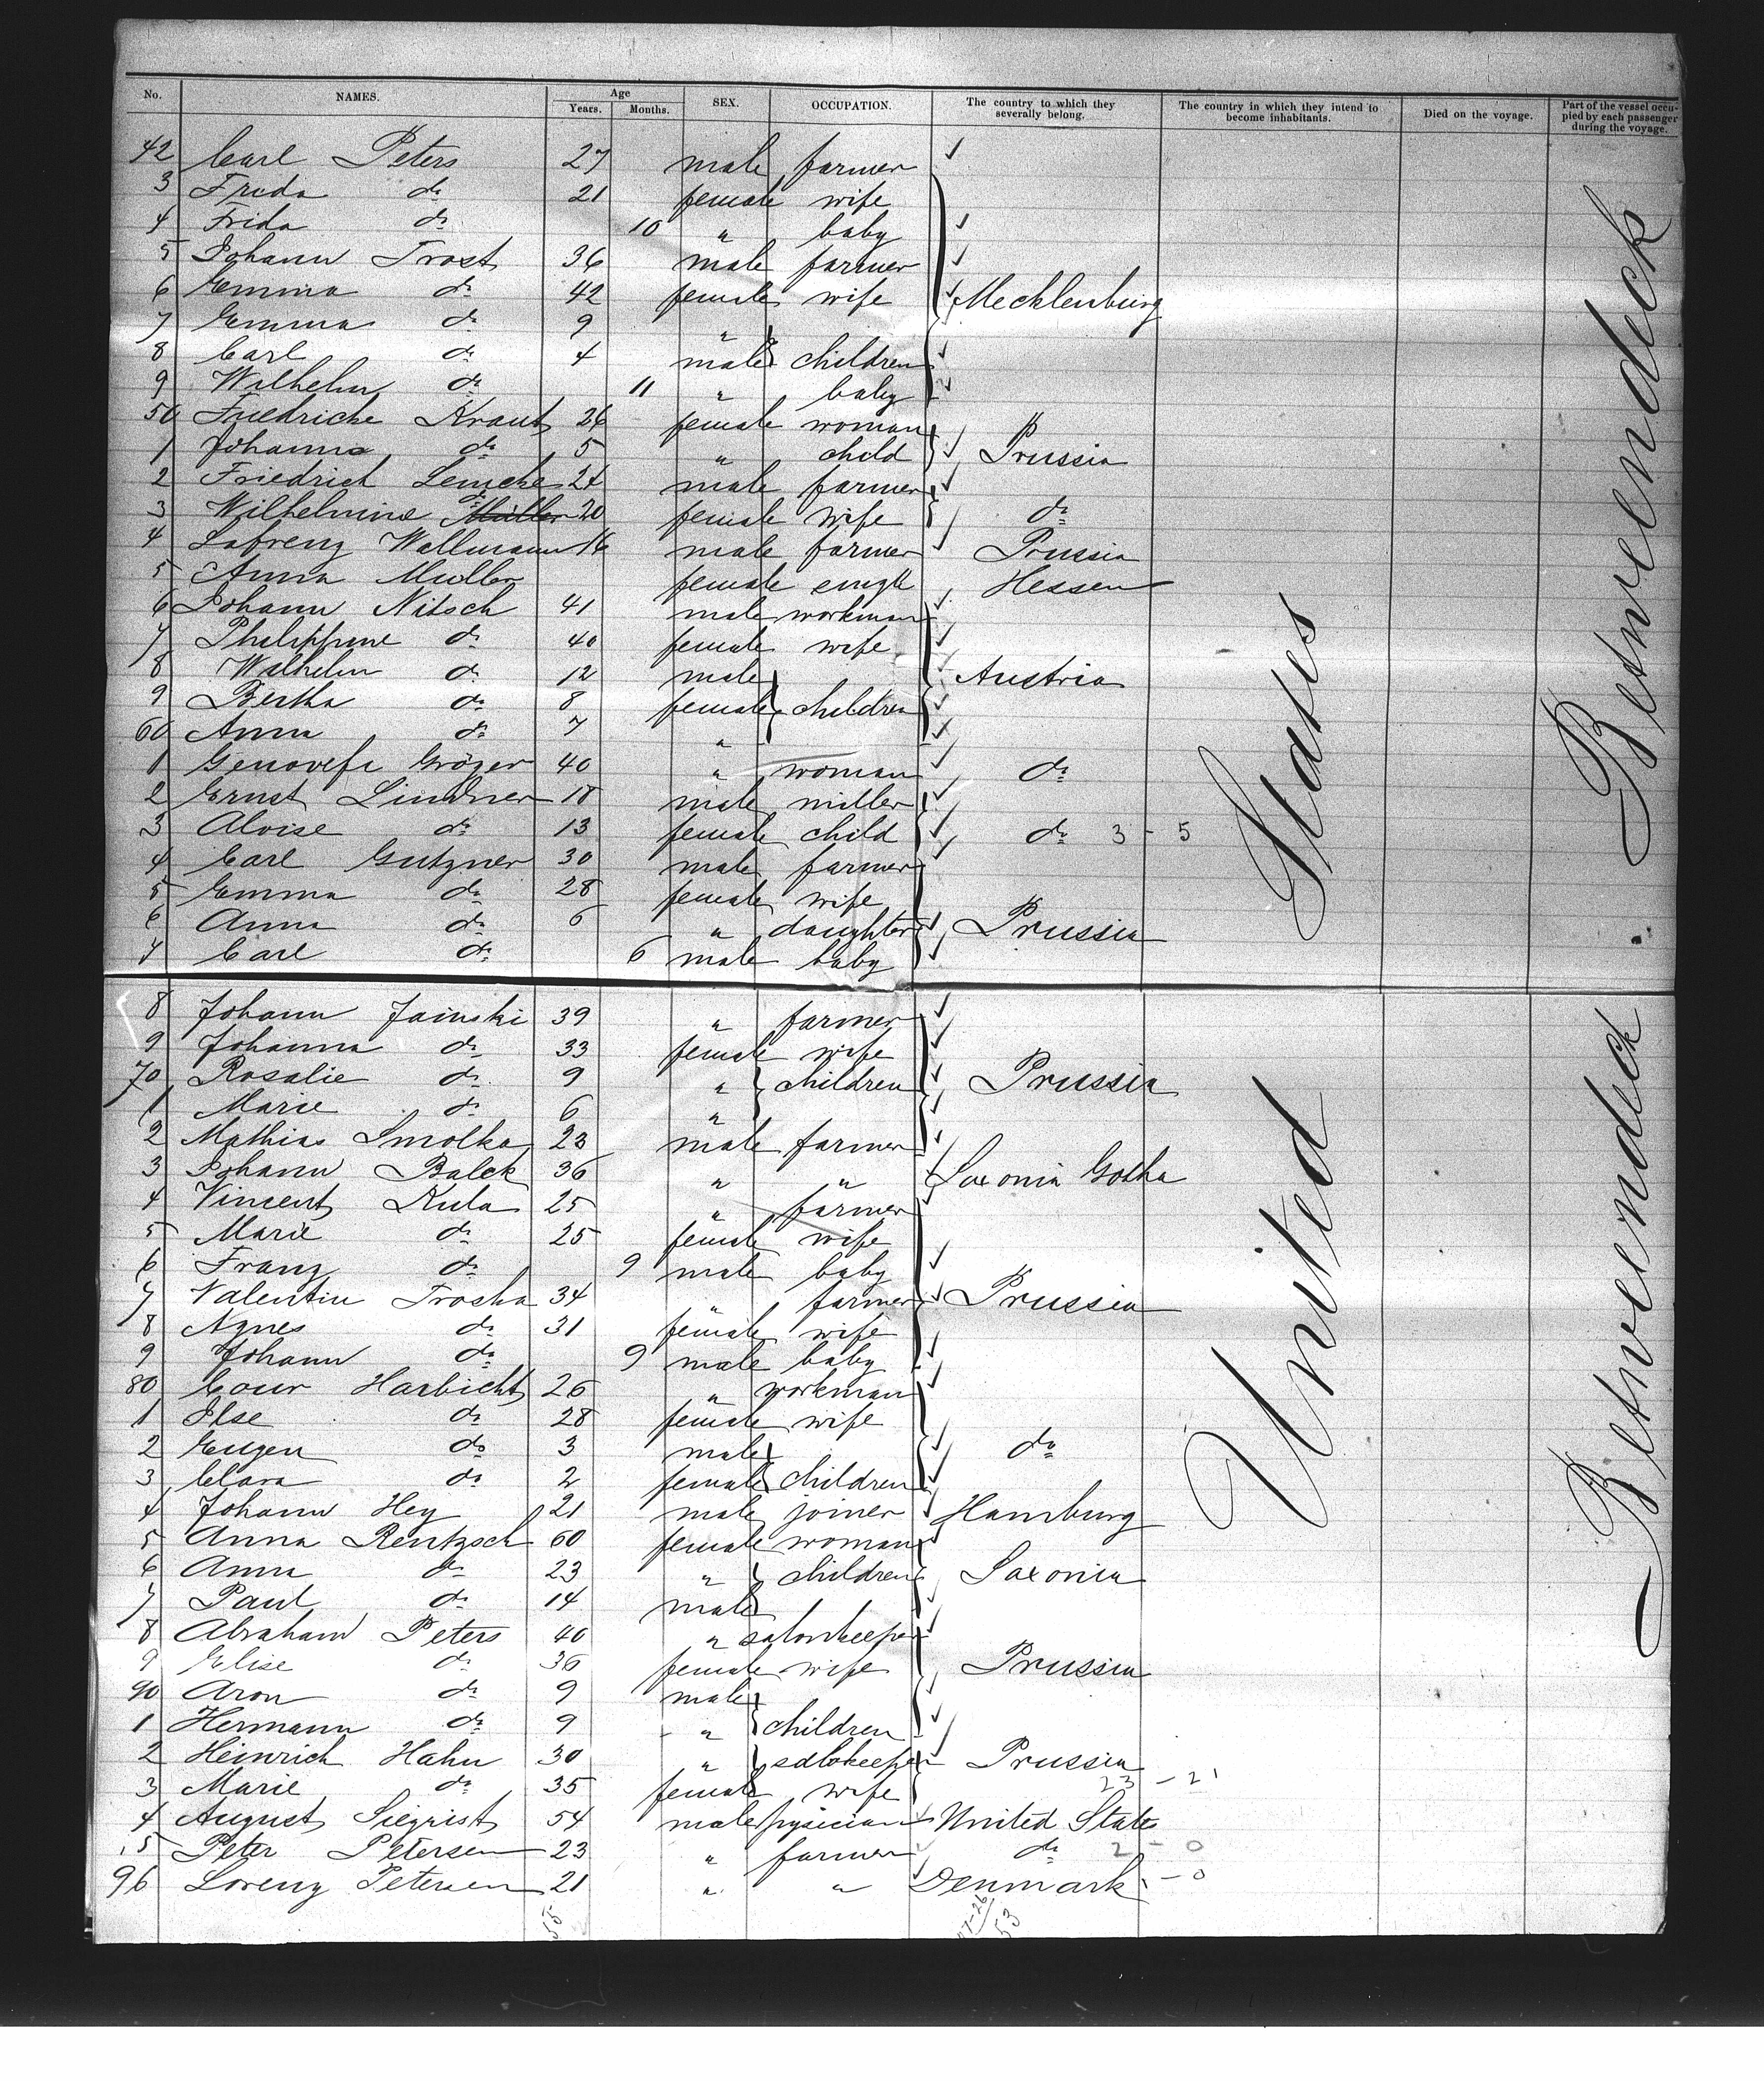 No. NAMES. Age Years. Months. SEX. OCCUPATION. The country to which they severally belong. The country in which they intend to become inhabitants. Died on the voyage. Part of the vessel occupied by each passenger during the voyage.
42 Carl Peters 27 male farmer
3 Frieda do 21 female wife
4 Frida do 10 " baby
5 Johann Trost 36 male farmer
6 Emma do 42 female wife Mecklenburg
7 Emma do 9 "
8 Carl do 4 male children
9 Wilhelm do 11 " baby
50 Friedricke Kraut 26 female woman
1 Johanna do 5 " child Prussia
2 Friedrich Lemcke 24 male farmer
3 Wilhelmine do Müller 20 female wife do
4 Lafrenz Wallmann 16 male farmer Prussia
5 Anna Muller female single Hessen
6 Johann Nitsch 41 male workman
7 Philippine do 40 female wife
8 Wilhelm do 12 male Austria
9 Bertha do 8 female children
60 Anna do 7 "
1 Genovefa Gröger 40 " woman do
2 Ernst Lindner 18 male miller
3 Aloise do 13 female child do 3 - 5
4 Carl Gutzner 30 male farmer
5 Emma do 28 female wife
6 Anna do 6 " daughter Prussia
7 Carl do 6 male baby
8 Johann Jainski 39 " farmer
9 Johanna do 33 female wife
70 Rosalie do 9 " children Prussia
1 Marie do 6 "
2 Mathias Smolka 23 male farmer
3 Johann Balek 36 " " Saxonia Gotha
4 Vincent Kula 25 " farmer
5 Marie do 25 female wife
6 Franz do 9 male baby
7 Valentin Troska 34 " farmer Prussia
8 Agnes do 31 female wife
9 Johann do 9 male baby
80 Cour Harbicht 26 " workman
1 Ilse do 28 female wife
2 Eugen do 3 male do
3 Clara do 2 female children
4 Johann Hey 21 male joiner Hamburg
5 Anna Rentzsch 60 female woman
6 Anna do 23 " children Saxonia
7 Paul do 14 male
8 Abraham Peters 40 " salonkeeper
9 Elise do 36 female wife Prussia
90 Aron do 9 male
1 Hermann do 9 " children
2 Heinrich Hahn 30 " salokeeper Prussia
3 Marie do 35 female wife 23 - 21
4 August Siegrist 54 male physician United States
5 Peter Petersen 23 " farmer do 2 - 0
96 Lorenz Petersen 21 " " Denmark - 0
55
53
United States
Betweendeck
Betweendeck